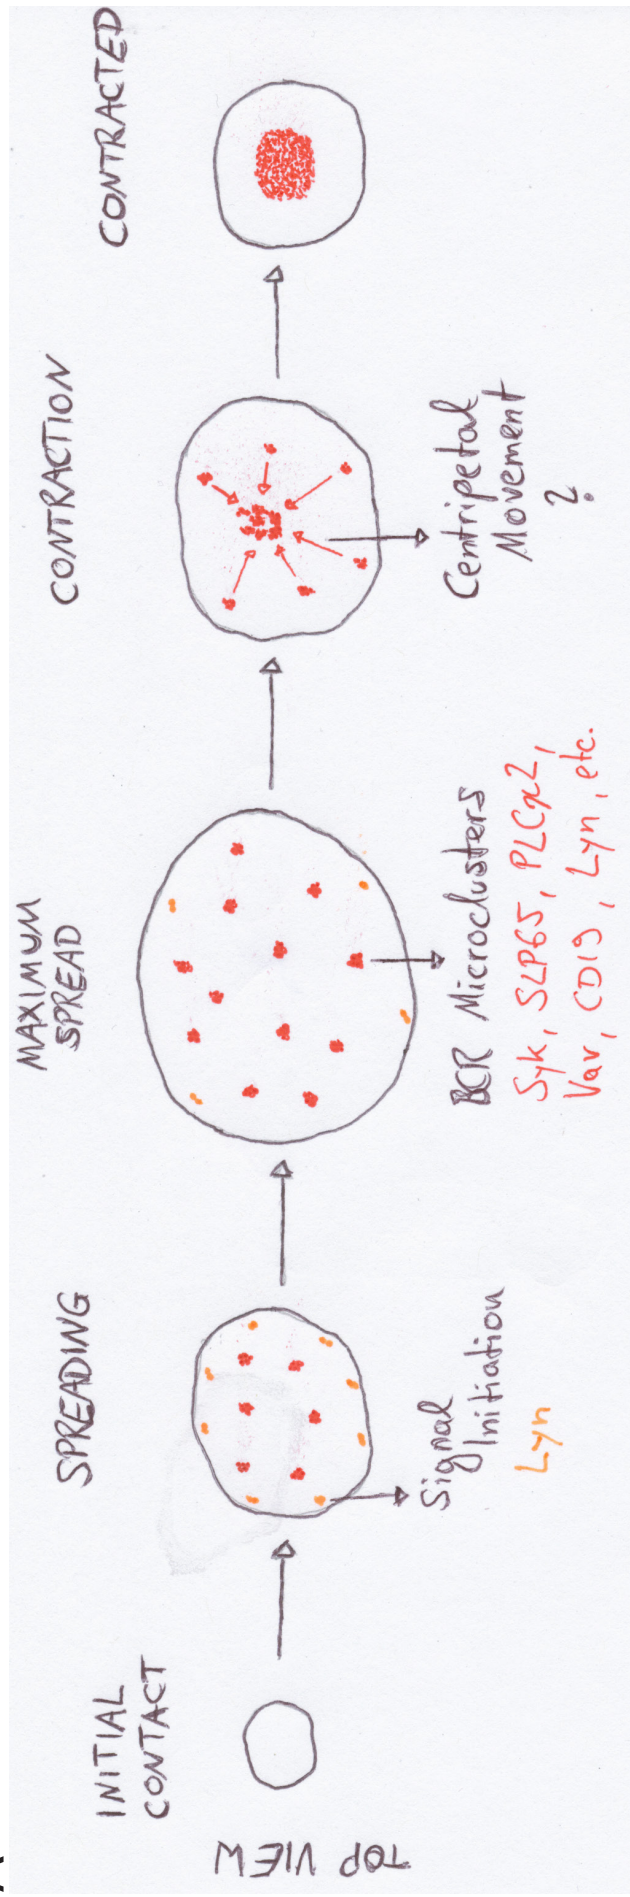 TOP VIEW
INITIAL
CONTACT
SPREADING
Signal
Initiation
Lyn
MAXIMUM
SPREAD
BCR Microclusters
Syk, SLP65, PLCγ2,
Vav, CD19, Lyn, etc.
CONTRACTION
Centripetal
Movement
?
CONTRACTED